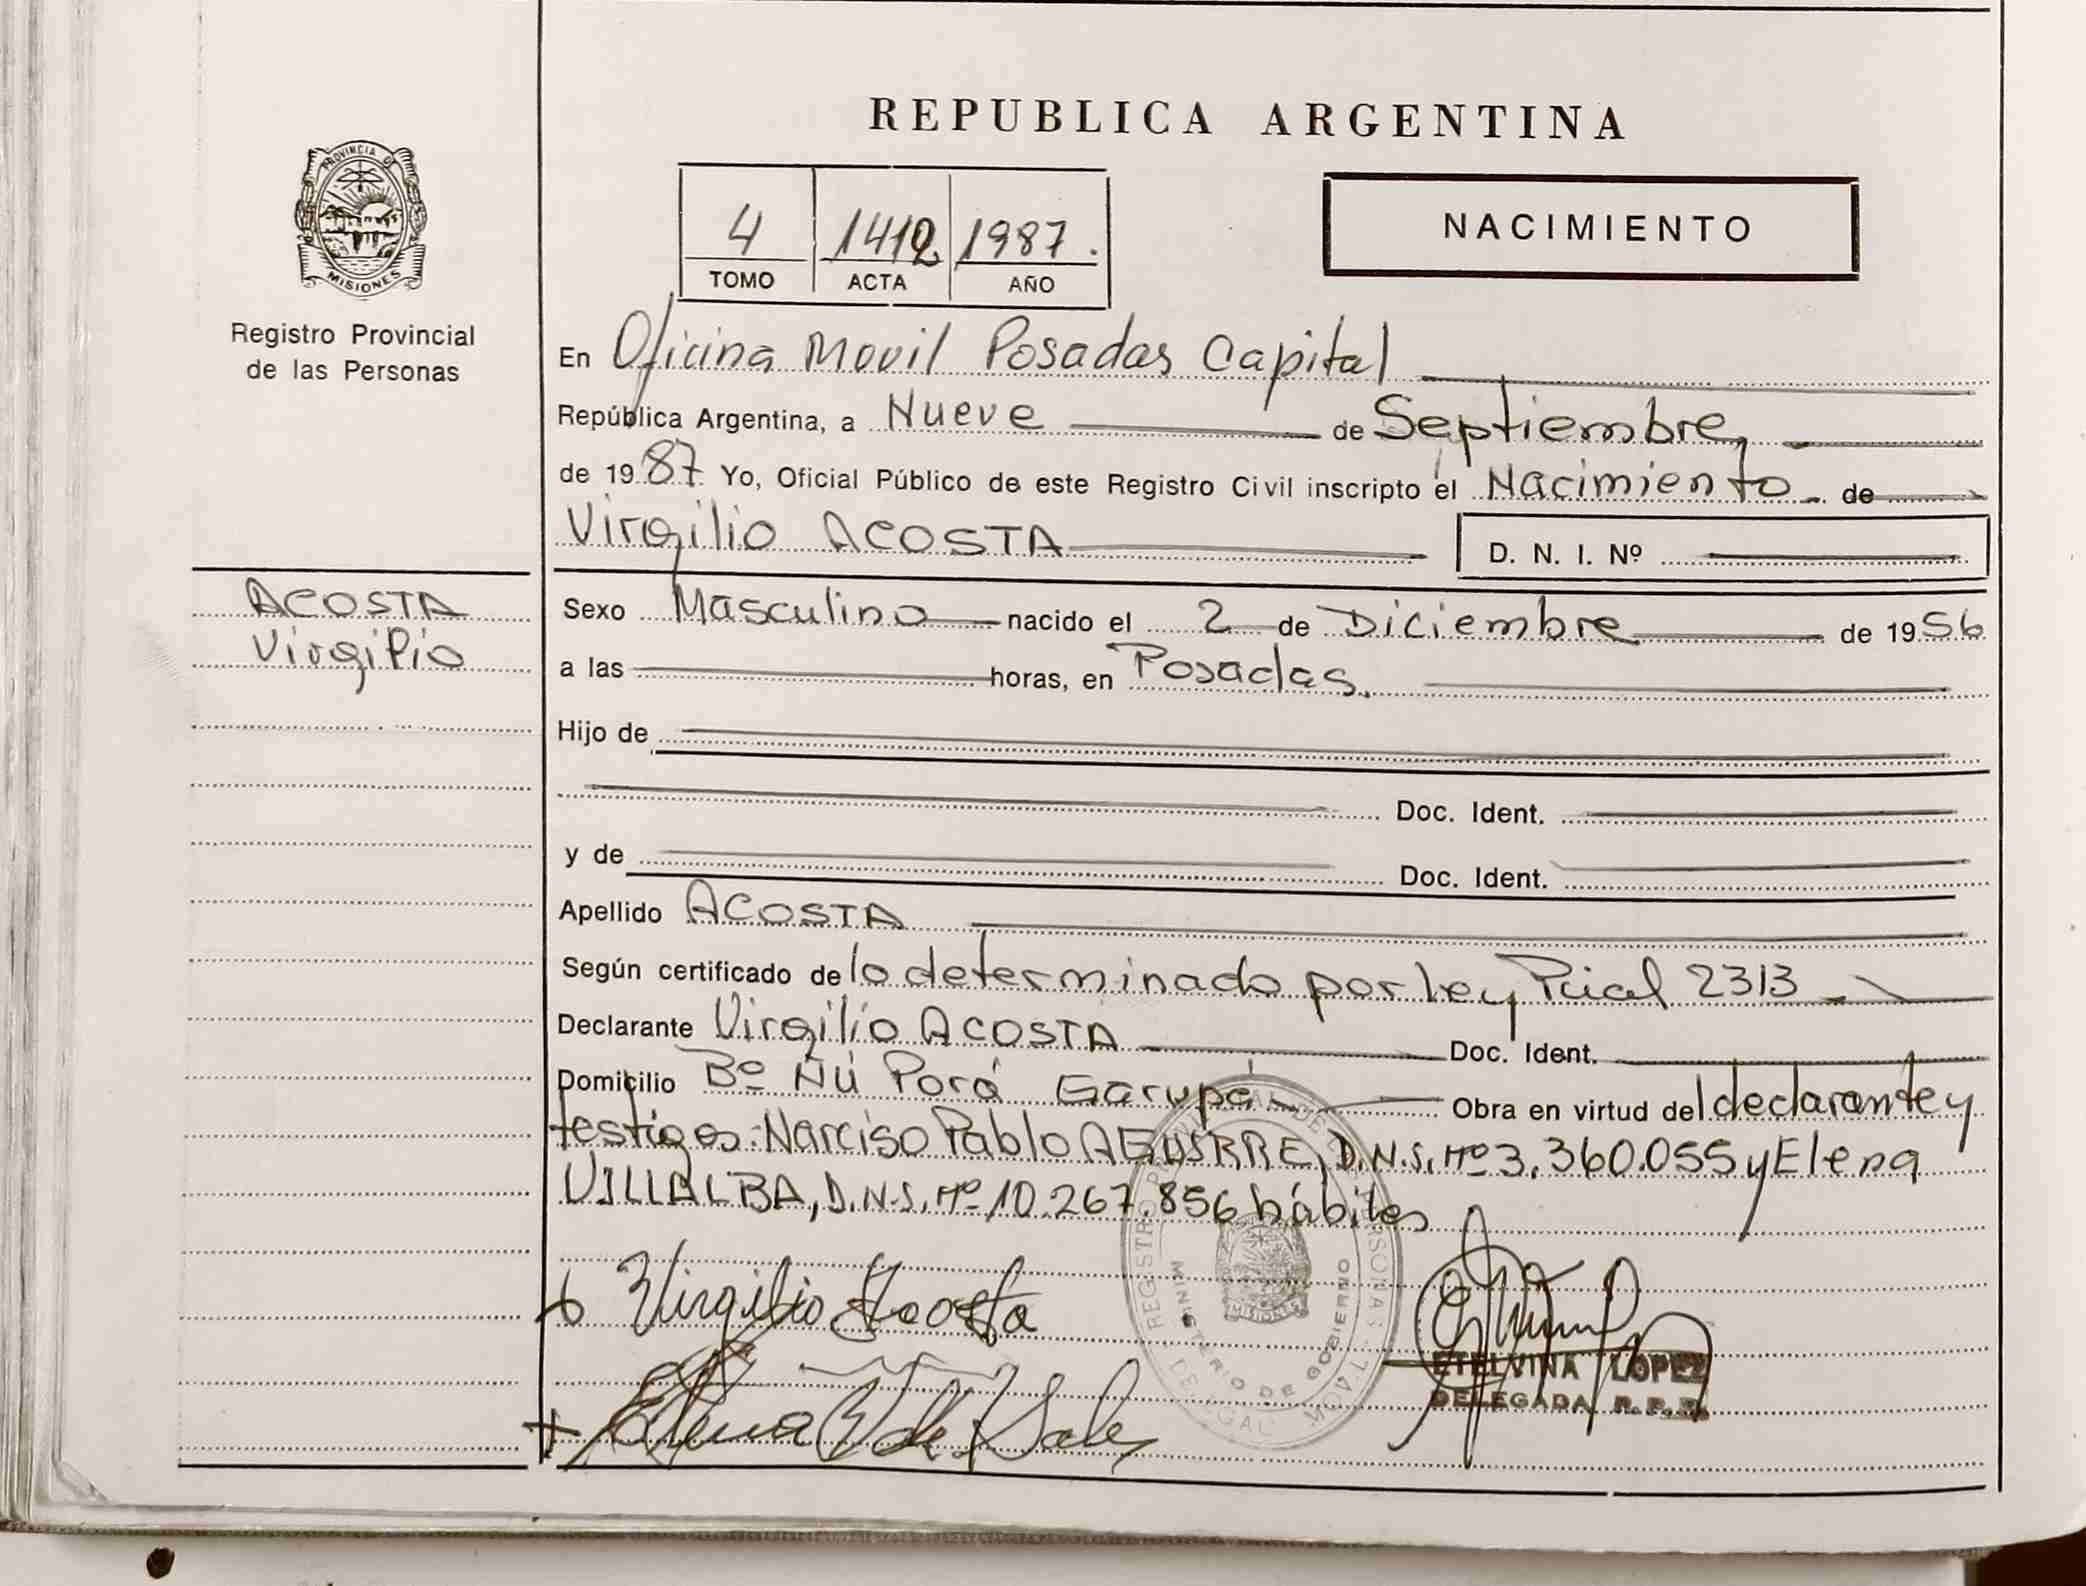 REPUBLICA ARGENTINA
PROVINCIA DE
MISIONES
Registro Provincial
de las Personas
4 1412 1987.
TOMO ACTA AÑO
NACIMIENTO
En Oficina Movil Posadas Capital
República Argentina, a Nueve de Septiembre,
de 1987. Yo, Oficial Público de este Registro Civil inscripto el Nacimiento de
Virgilio ACOSTA D. N. I. Nº
ACOSTA
Virgilio
Sexo Masculino nacido el 2 de Diciembre de 1956
a las horas, en Posadas.
Hijo de
Doc. Ident.
y de Doc. Ident.
Apellido ACOSTA
Según certificado de lo determinado por Ley Pcial 2313
Declarante Virgilio ACOSTA Doc. Ident.
Domicilio Bº Ñú Porá Garupá Obra en virtud del declarante y
testigos: Narciso Pablo AGUIRRE, D.N.I. Nº 3.360.055 y Elena
VILLALBA, D.N.I. Nº 10.267.856 hábiles
Virgilio Acosta
Elena V. de
REGISTRO PROVINCIAL DE LAS PERSONAS
MINISTERIO DE GOBIERNO
MISIONES
MOVIL
ETELVINA LOPEZ
DELEGADA R.P.P.